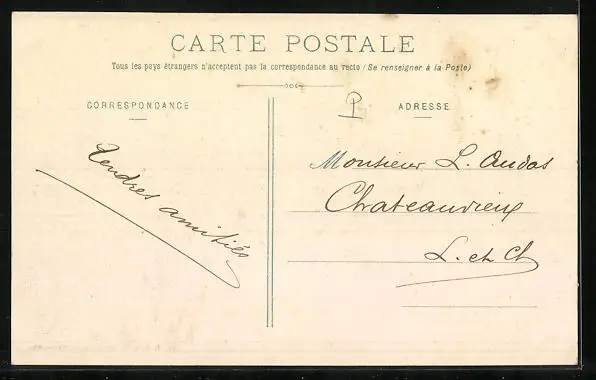 CARTE POSTALE
Tous les pays étrangers n'acceptent pas la correspondance au recto (Se renseigner à la Poste)
CORRESPONDANCE
Tendres amitiés
P
ADRESSE
Monsieur L. Audas
Chateauvieux
L. et Ch